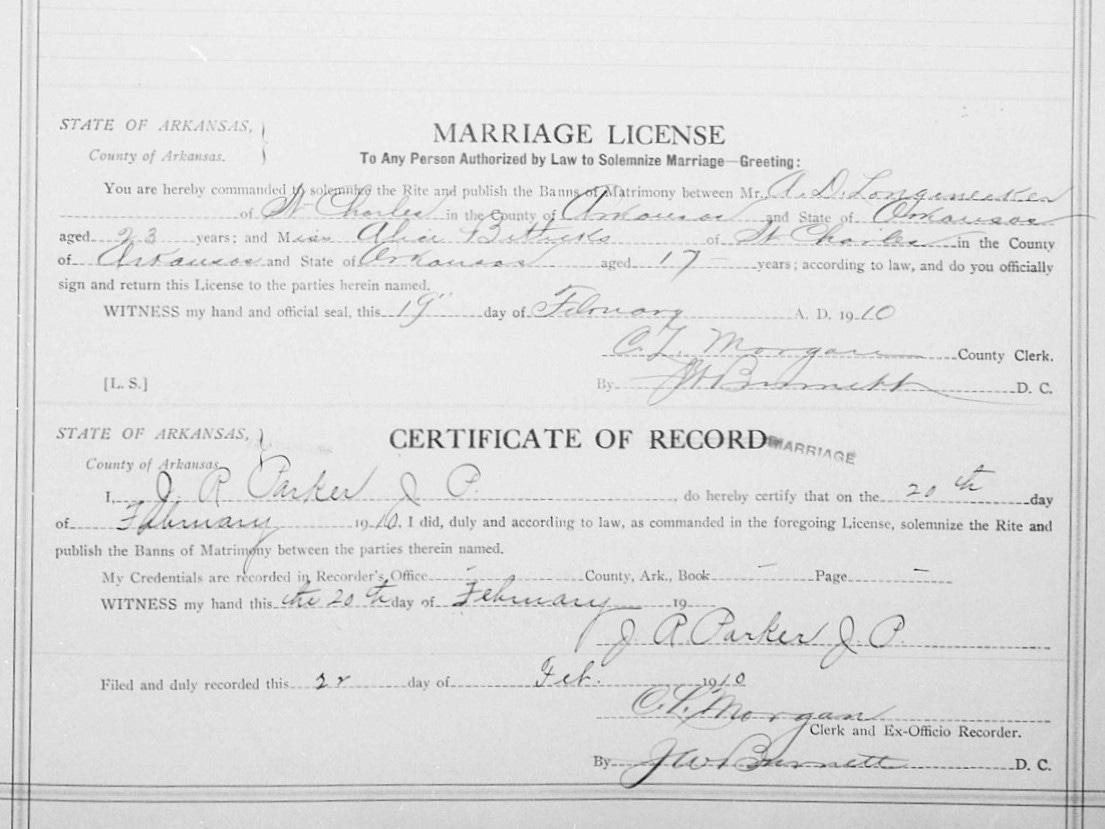 STATE OF ARKANSAS,
County of Arkansas.
MARRIAGE LICENSE
To Any Person Authorized by Law to Solemnize Marriage—Greeting:
You are hereby commanded to solemnize the Rite and publish the Banns of Matrimony between Mr. A. D. Longnecker
of St Charles in the County of Arkansas and State of Arkansas
aged 23 years; and Miss Alice of St Charles in the County
of Arkansas and State of Arkansas aged 17 — years; according to law, and do you officially
sign and return this License to the parties herein named.
WITNESS my hand and official seal, this 19" day of February A. D. 1910
C. L. Morgan County Clerk.
[L. S.] By J W Burnett D. C.
STATE OF ARKANSAS,
County of Arkansas
CERTIFICATE OF RECORD MARRIAGE
I, J. R Parker J P. , do hereby certify that on the 20th day
of February 1910. I did, duly and according to law, as commanded in the foregoing License, solemnize the Rite and
publish the Banns of Matrimony between the parties therein named.
My Credentials are recorded in Recorder's Office - County, Ark., Book — Page —
WITNESS my hand this the 20th day of February 19
J. R. Parker J. P.
Filed and duly recorded this day of Feb. 1910
C. L. Morgan
Clerk and Ex-Officio Recorder.
By J W Burnett D. C.